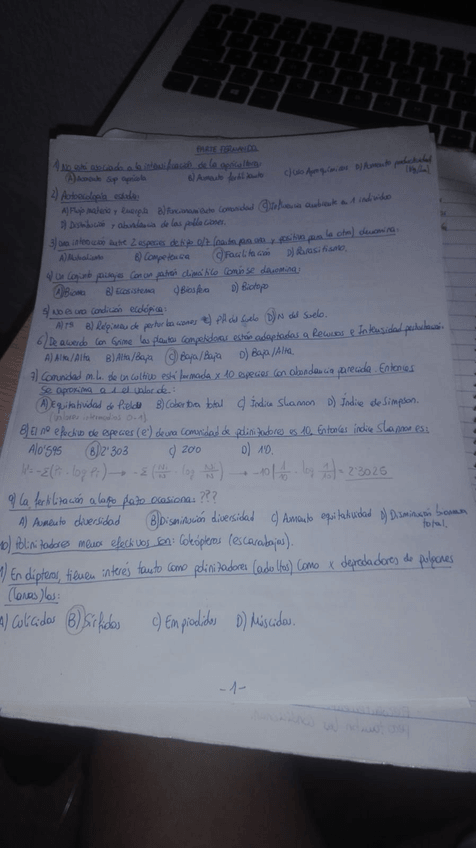 PARTE FERNANDO
1) No está asociado a la intensificación de la agricultura:
A) Aumento sup agrícola B) Aumento fertilizante C) Uso Agroquímicos D) Aumento productividad (kg/ha)
2) Autoecología estudia:
A) Flujo materia y energía B) Funcionamiento comunidad C) Influencia ambiente en 1 individuo
D) Distribución y abundancia de las poblaciones.
3) Una interacción entre 2 especies de tipo 0/+ (neutra para una y positiva para la otra) denomina:
A) Mutualismo B) Competencia C) Facilitación D) Parasitismo.
4) Un conjunto paisajes con un patrón climático común se denomina:
A) Bioma B) Ecosistema C) Biosfera D) Biotopo
5) No es una condición ecológica:
A) Tª B) Régimen de perturbaciones C) pH del suelo D) N del suelo.
6) De acuerdo con Grime las plantas competidores están adaptadas a Recursos e Intensidad perturbación
A) Alta/Alta B) Alta/Baja C) Baja/Baja D) Baja/Alta.
7) Comunidad m.h. de un cultivo está formada x 10 especies con abundancia parecida. Entonces
se aproxima a 1 el valor de:
A) Equitatividad de Pielou B) Cobertura total C) Índice Shannon D) Índice de Simpson.
8) El nº efectivo de especies (e') de una comunidad de polinizadores es 10. Entonces índice Shannon es:
A) 0'595 B) 2'303 C) 200 D) 10.
9) La fertilización a largo plazo ocasiona: ???
A) Aumento diversidad B) Disminución diversidad C) Aumento equitatividad D) Disminución biomasa total.
10) Polinizadores menos efectivos son: Coleópteros (escarabajos).
11) En dípteros, tienen interés tanto como polinizadores (adultos) como x depredadores de pulgones
(larvas) los:
A) Culícidos B) Sírfidos C) Empídidos D) Múscidos.
-1-